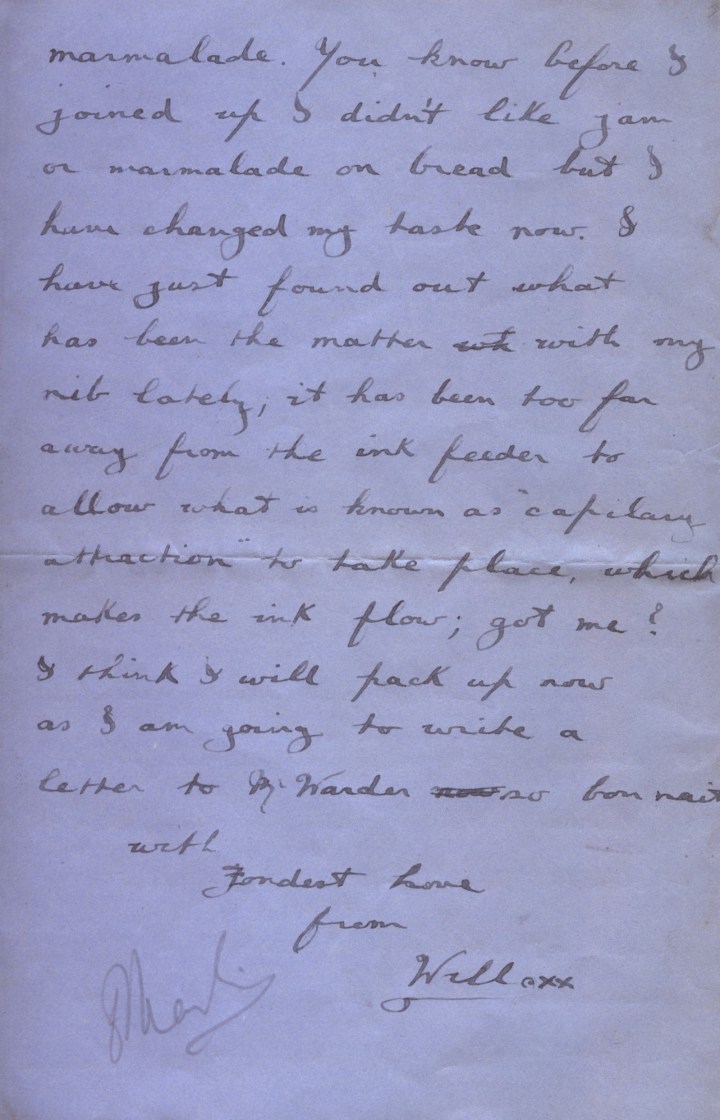 marmalade. You know before I
joined up I didn't like jam
or marmalade on bread but I
have changed my taste now. I
have just found out what
has been the matter with my
nib lately; it has been too far
away from the ink feeder to
allow what is known as "capilary
attraction" to take place, which
makes the ink flow; got me?
I think I will pack up now
as I am going to write a
letter to Mr Warder so bon nait
with
Fondest Love
from
Will oxx